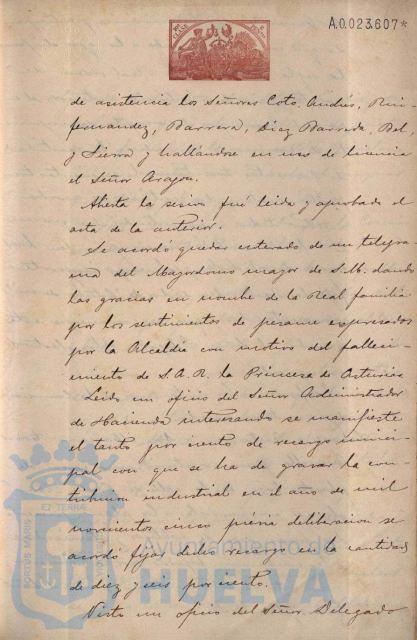 A.0.023.607*
de asistencia los Señores Coto, Andrés, Rui
fernandez, Barrera, Diaz Barreda, Bel,
y Sierra y hallándose en uso de licencia
el Señor Aragon.
Abierta la sesion fué leida y aprobada el
acta de la anterior.
Se acordó quedar enterado de un telegra
ma del Mayordomo mayor de S. M. dando
las gracias en nombre de la Real familia
por los sentimientos de pésame expresados
por la Alcaldía con motivo del falleci-
miento de S. A. R. la Princesa de Asturias
Leido un oficio del Señor Administrador
de Hacienda interesando se manifieste
el tanto por ciento de recargo munici-
pal con que se ha de gravar la con-
tribucion industrial en el año de mil
novecientos cinco prévia deliberacion se
acordó fijar dicho recargo en la cantidad
de diez y seis por ciento.
Visto un oficio del Señor Delegado
Ayuntamiento de
HUELVA